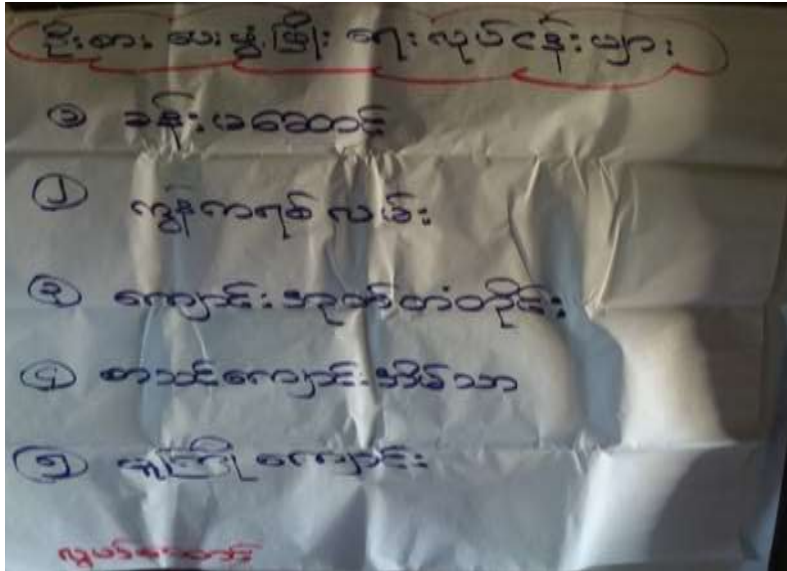 ဦးစားပေးဖွံ့ဖြိုးရေးလုပ်ငန်းများ
၁ ခန်းမဆောင်
၂ ကွန်ကရစ်လမ်း
၃ ကျောင်းအုတ်တံတိုင်း
၄ စာသင်ကျောင်းအိမ်သာ
၅ မူကြိုကျောင်း